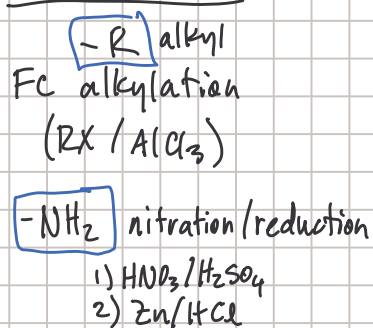 -R alkyl
FC alkylation
(RX / AlCl₃)
-NH₂ nitration/reduction
1) HNO₃/H₂SO₄
2) Zn/HCl